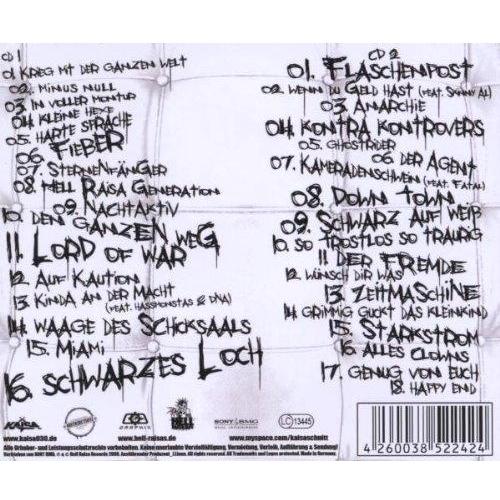 CD 1
01. KRIEG MIT DER GANZEN WELT
02. MINUS NULL
03. IN VOLLER MONTUR
04. KLEINE HEXE
05. HARTE SPRACHE
06. FIEBER
07. STERNENFÄNGER
08. HELL RAISA GENERATION
09. NACHTAKTIV
10. DEN GANZEN WEG
11. LORD OF WAR
12. AUF KAUTION
13. KINDA AN DER MACHT
(FEAT. HASSMONSTAS & DNA)
14. WAAGE DES SCHICKSAALS
15. MIAMI
16. SCHWARZES LOCH
CD 2
01. FLASCHENPOST
02. WENN DU GELD HAST (FEAT. SKINNY AL)
03. ANARCHIE
04. KONTRA KONTROVERS
05. GHOSTRIDER
06. DER AGENT
07. KAMERADENSCHWEIN (FEAT. FATAL)
08. DOWN TOWN
09. SCHWARZ AUF WEIß
10. SO TROSTLOS SO TRAURIG
11. DER FREMDE
12. WÜNSCH DIR WAS
13. ZEITMASCHINE
14. GRIMMIG GUCKT DAS KLEINKIND
15. STARKSTROM
16. ALLES CLOWNS
17. GENUG VON EUCH
18. HAPPY END
KAISA
GRAPHIK
HELL
SONY BMG
LC 13445
www.kaisa030.de
www.hell-raisas.de
www.myspace.com/kaisaschnitt
Alle Urheber- und Leistungsschutzrechte vorbehalten. Keine unerlaubte Vervielfältigung, Vermietung, Verleih, Aufführung u. Sendung!
4 260038 522424